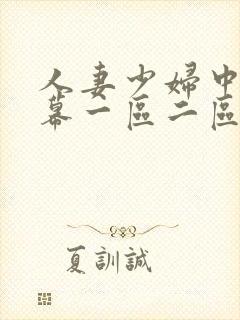 人妻少婦中
幕一區二區
夏訓誠